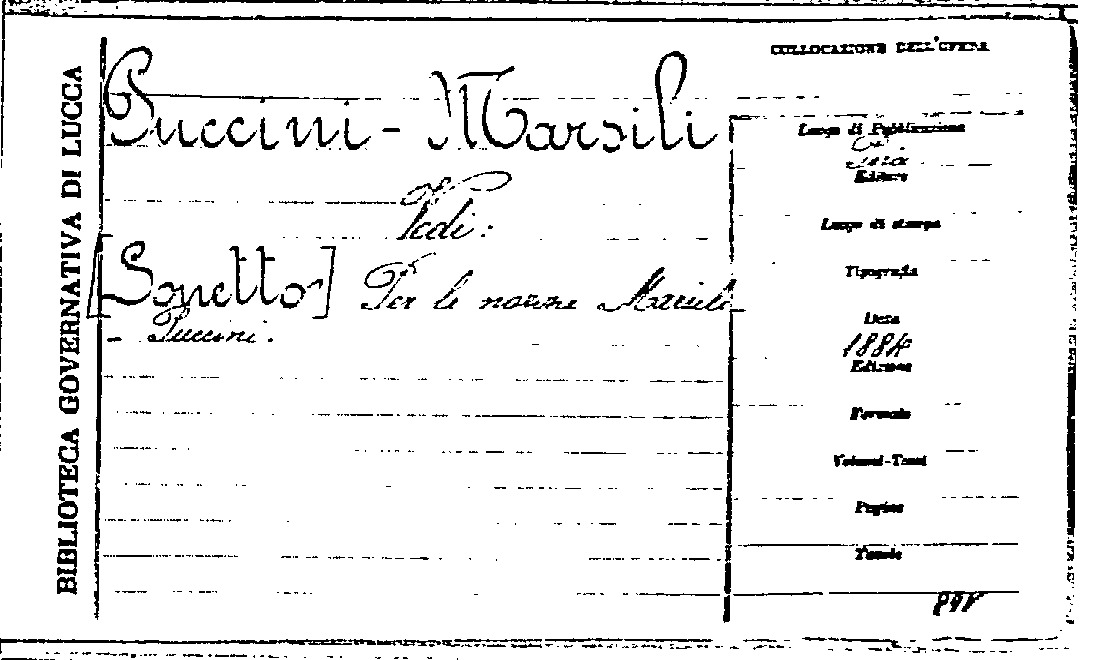 BIBLIOTECA GOVERNATIVA DI LUCCA
COLLOCAZIONE DELL'OPERA
Puccini - Marsili
Vedi:
[Sonetto] Per le nozze Marsili
- Puccini.
Luogo di Pubblicazione
Editore
Luogo di stampa
Tipografia
Data
1884
Edizione
Formato
Volumi-Tomi
Pagine
Tavole